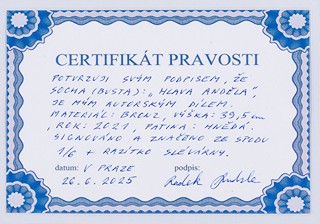 CERTIFIKÁT PRAVOSTI
POTVRZUJI SVÝM PODPISEM, ŽE
SOCHA (BUSTA): „HLAVA ANDĚLA",
JE MÝM AUTORSKÝM DÍLEM.
MATERIÁL: BRONZ, VÝŠKA: 39,5 cm
, ROK: 2021, PATINA: HNĚDÁ.
SIGNOVÁNO A ZNAČENO ZE SPODU
1/6 + RAZÍTKO SLÉVÁRNY.
datum: V PRAZE podpis:
26.6.2025 Radek